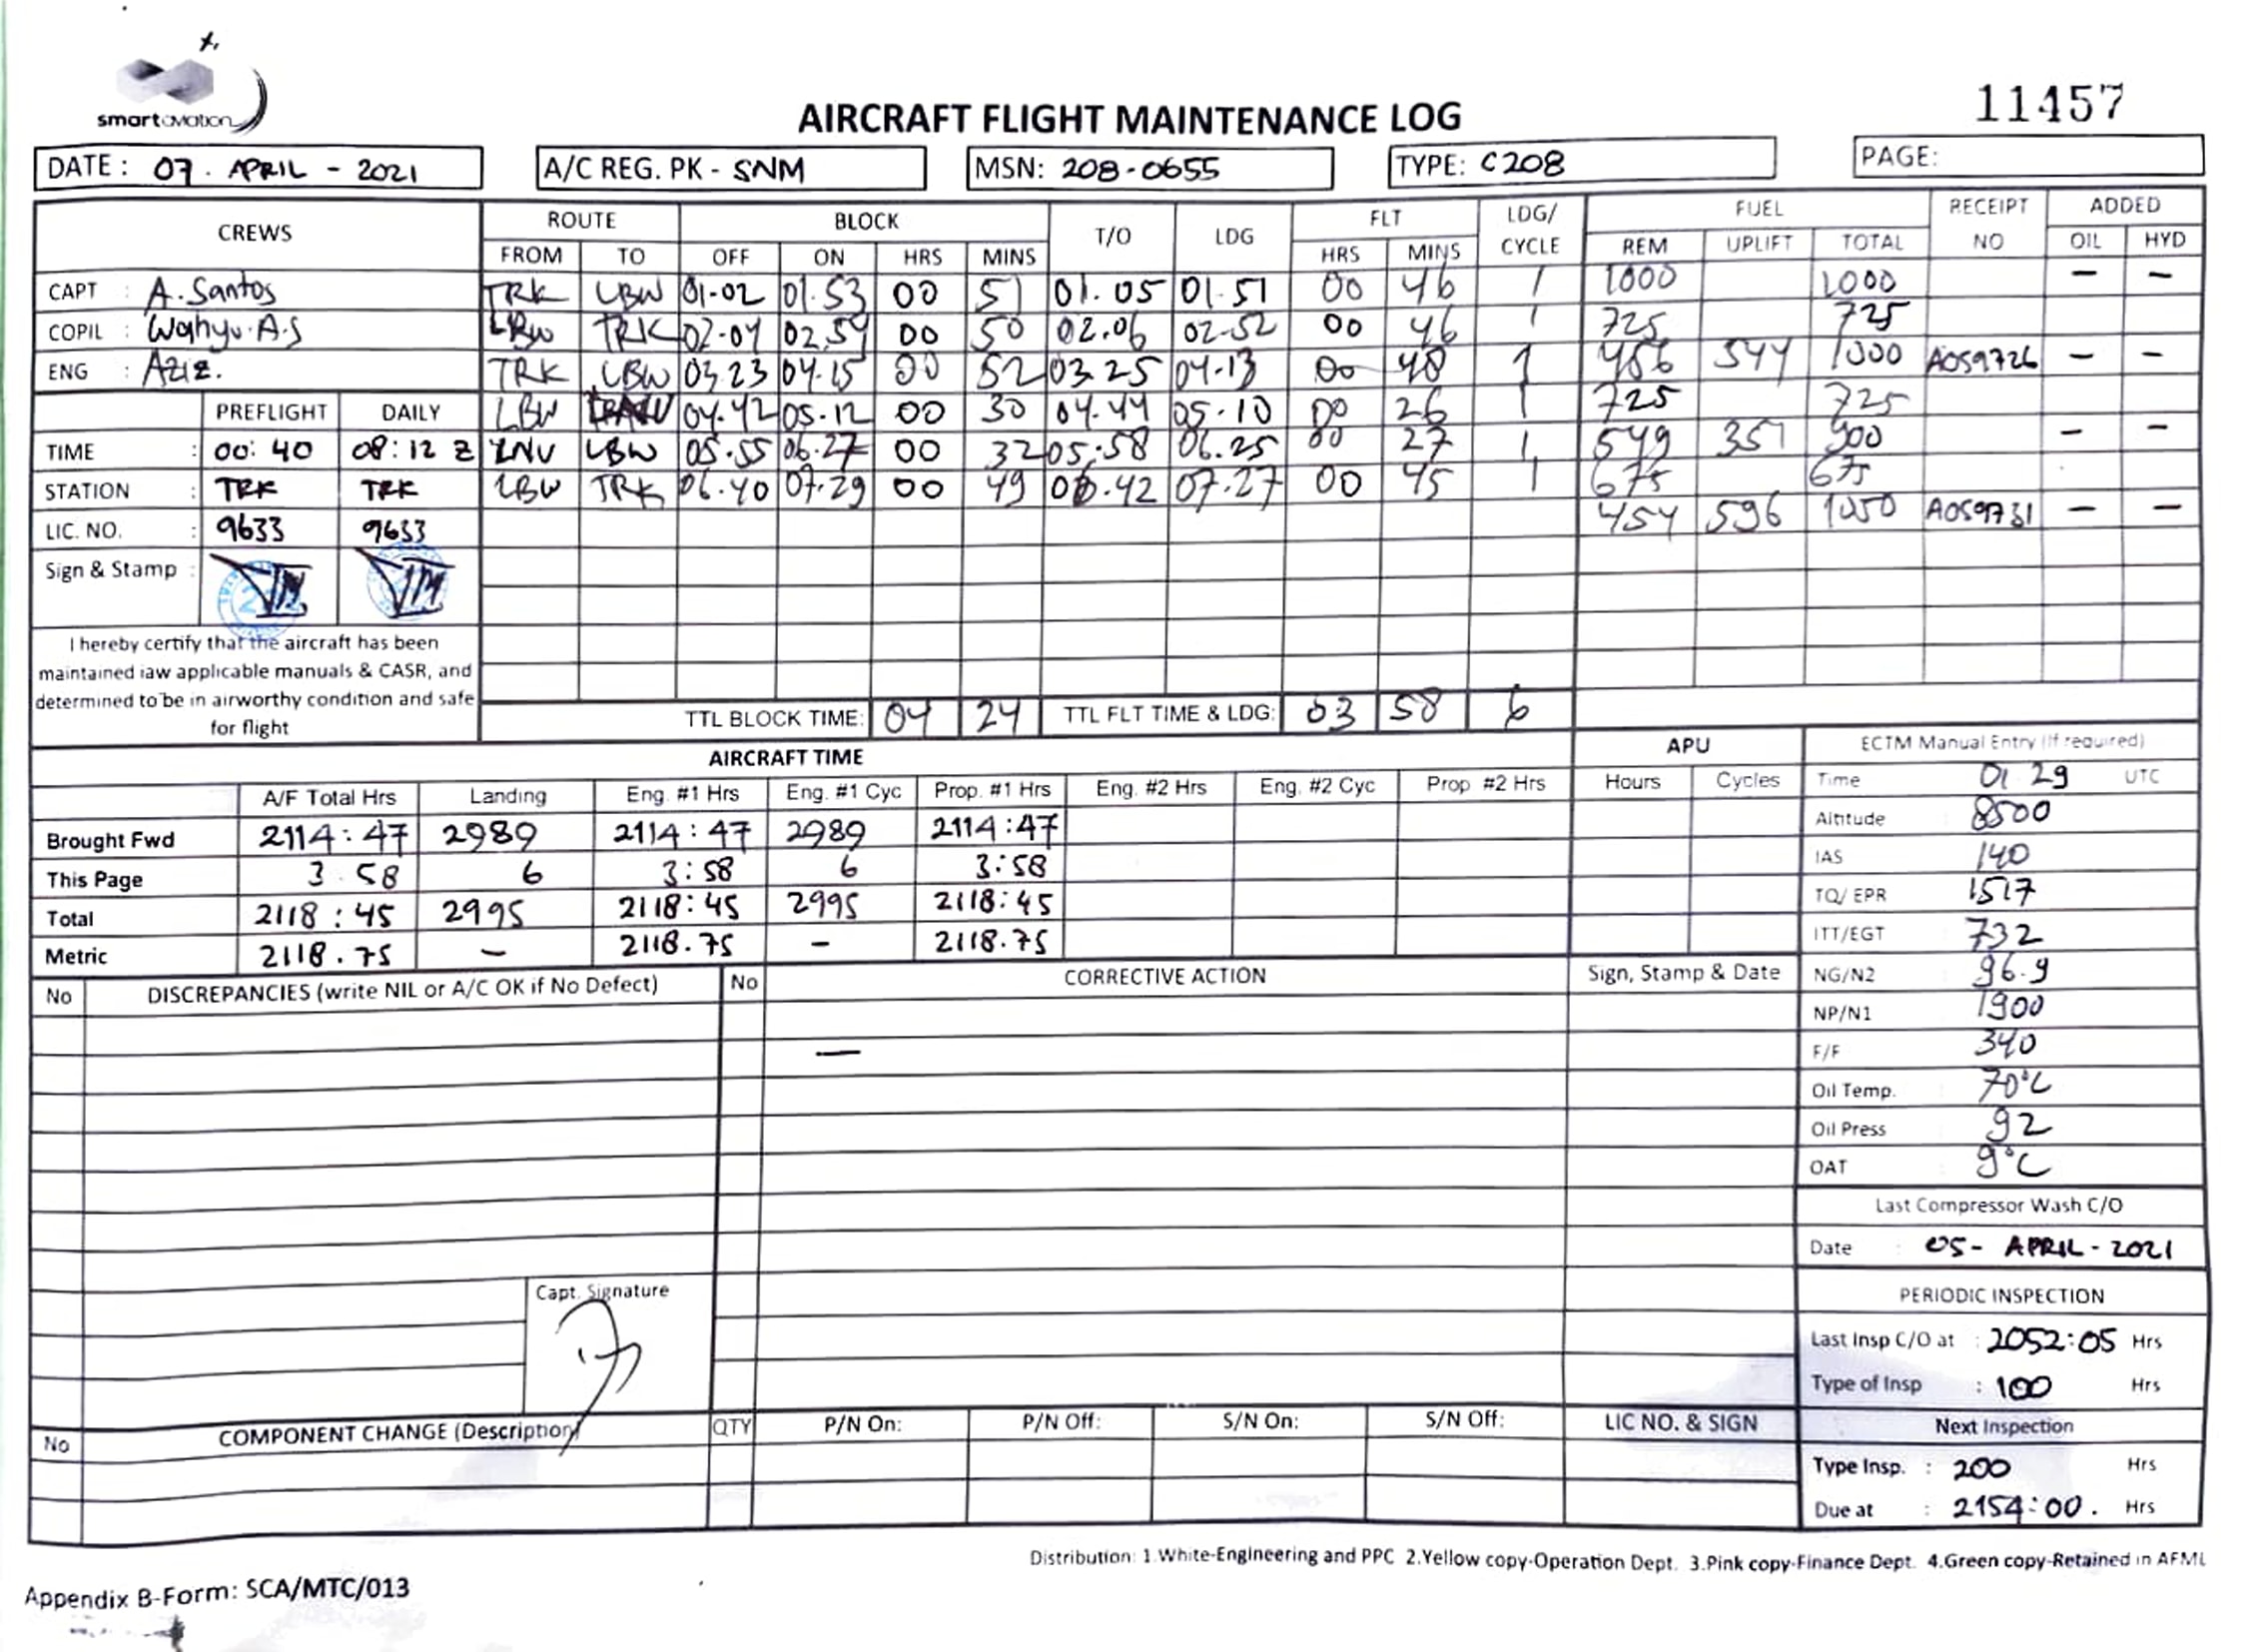 smartaviation
11457
AIRCRAFT FLIGHT MAINTENANCE LOG
DATE : 07 . APRIL - 2021 A/C REG. PK - SNM MSN: 208-0655 TYPE: C208 PAGE:
CREWS ROUTE BLOCK T/O LDG FLT LDG/ CYCLE FUEL RECEIPT NO ADDED
FROM TO OFF ON HRS MINS HRS MINS REM UPLIFT TOTAL OIL HYD
CAPT : A. Santos TRK LBW 01-02 01.53 00 51 01.05 01.51 00 46 1 1000 1000 - -
COPIL : Wahyu. A.S LBW TRK 02-04 02.54 00 50 02.06 02-52 00 46 1 725 725
ENG : Aziz. TRK LBW 03.23 04.15 00 52 03.25 04.13 00 48 1 456 544 1000 A059726 - -
PREFLIGHT DAILY LBW 04.42 05.12 00 30 04.44 05.10 00 26 1 725 725
TIME : 00:40 08:12 Z LNU LBW 05.55 06.27 00 32 05:58 06.25 00 27 1 549 351 900 - -
STATION : TRK TRK LBW TRK 06.40 07.29 00 49 06.42 07.27 00 45 1 675 675
LIC. NO. : 9633 9633 454 596 1050 A059731 - -
Sign & Stamp :
I hereby certify that the aircraft has been
maintained iaw applicable manuals & CASR, and
determined to be in airworthy condition and safe
for flight
TTL BLOCK TIME: 04 24 TTL FLT TIME & LDG: 03 58 6
AIRCRAFT TIME APU ECTM Manual Entry (If required)
A/F Total Hrs Landing Eng. #1 Hrs Eng. #1 Cyc Prop. #1 Hrs Eng. #2 Hrs Eng. #2 Cyc Prop #2 Hrs Hours Cycles Time 01 29 UTC
Brought Fwd 2114:47 2989 2114:47 2989 2114:47 Altitude 8500
This Page 3 58 6 3:58 6 3:58 IAS 140
Total 2118:45 2995 2118:45 2995 2118:45 TQ/ EPR 1517
Metric 2118.75 - 2118.75 - 2118.75 ITT/EGT 732
No DISCREPANCIES (write NIL or A/C OK if No Defect) No CORRECTIVE ACTION Sign, Stamp & Date NG/N2 96.9
NP/N1 1900
— F/F 340
Oil Temp. 70°C
Oil Press 92
OAT 9°C
Last Compressor Wash C/O
Date : 05- APRIL - 2021
Capt. Signature PERIODIC INSPECTION
Last Insp C/O at : 2052:05 Hrs
Type of Insp : 100 Hrs
No COMPONENT CHANGE (Description) QTY P/N On: P/N Off: S/N On: S/N Off: LIC NO. & SIGN Next Inspection
Type Insp. : 200 Hrs
Due at : 2154:00. Hrs
Distribution: 1.White-Engineering and PPC 2.Yellow copy-Operation Dept. 3.Pink copy-Finance Dept. 4.Green copy-Retained in AFML
Appendix B-Form: SCA/MTC/013